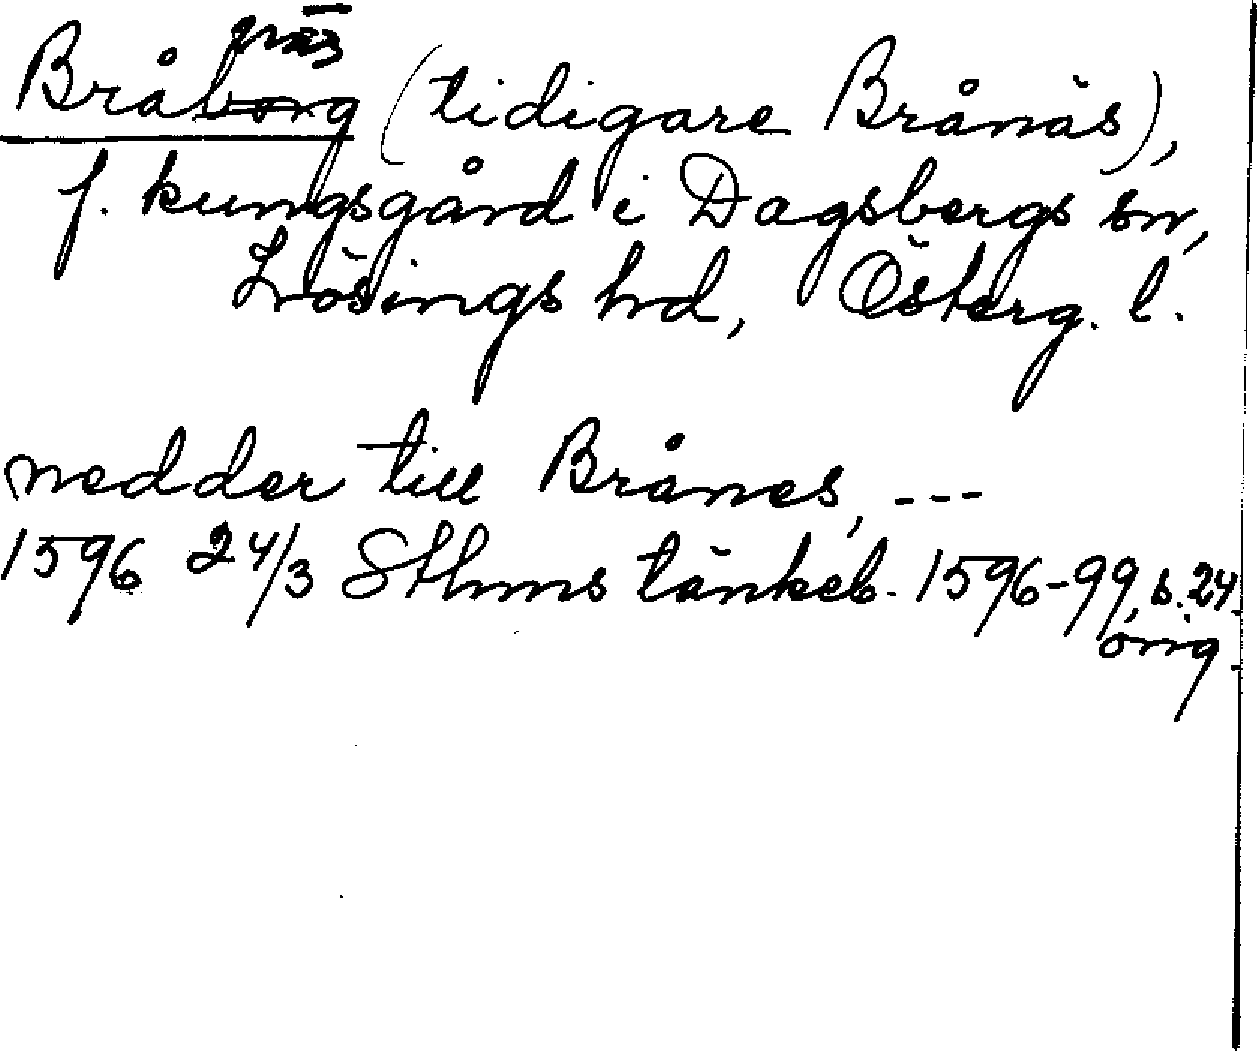 Bråborg (tidigare Brånäs),
f. kungsgård i Dagsbergs sn,
Lösings hd, Österg. l.
nedder till Brånes, ---
1596 24/3 Sthms tänkeb. 1596-99, s. 24.
orig.